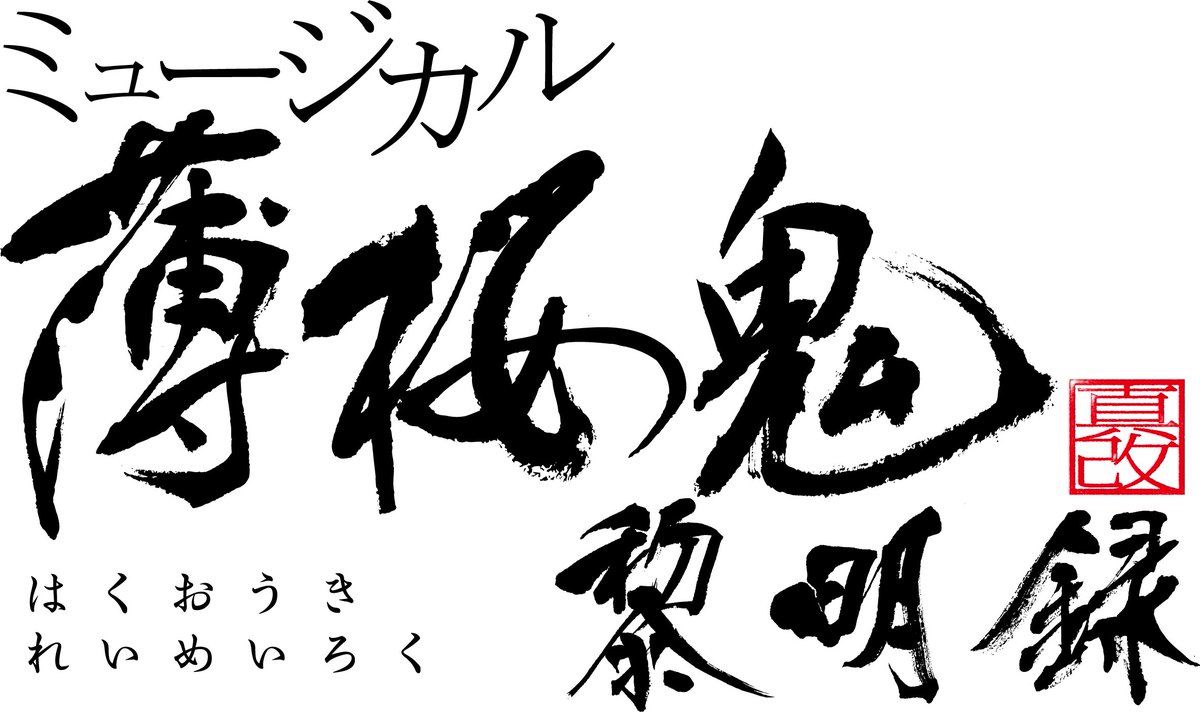 ミュージカル
薄桜鬼
真改
黎明録
はくおうき
れいめいろく